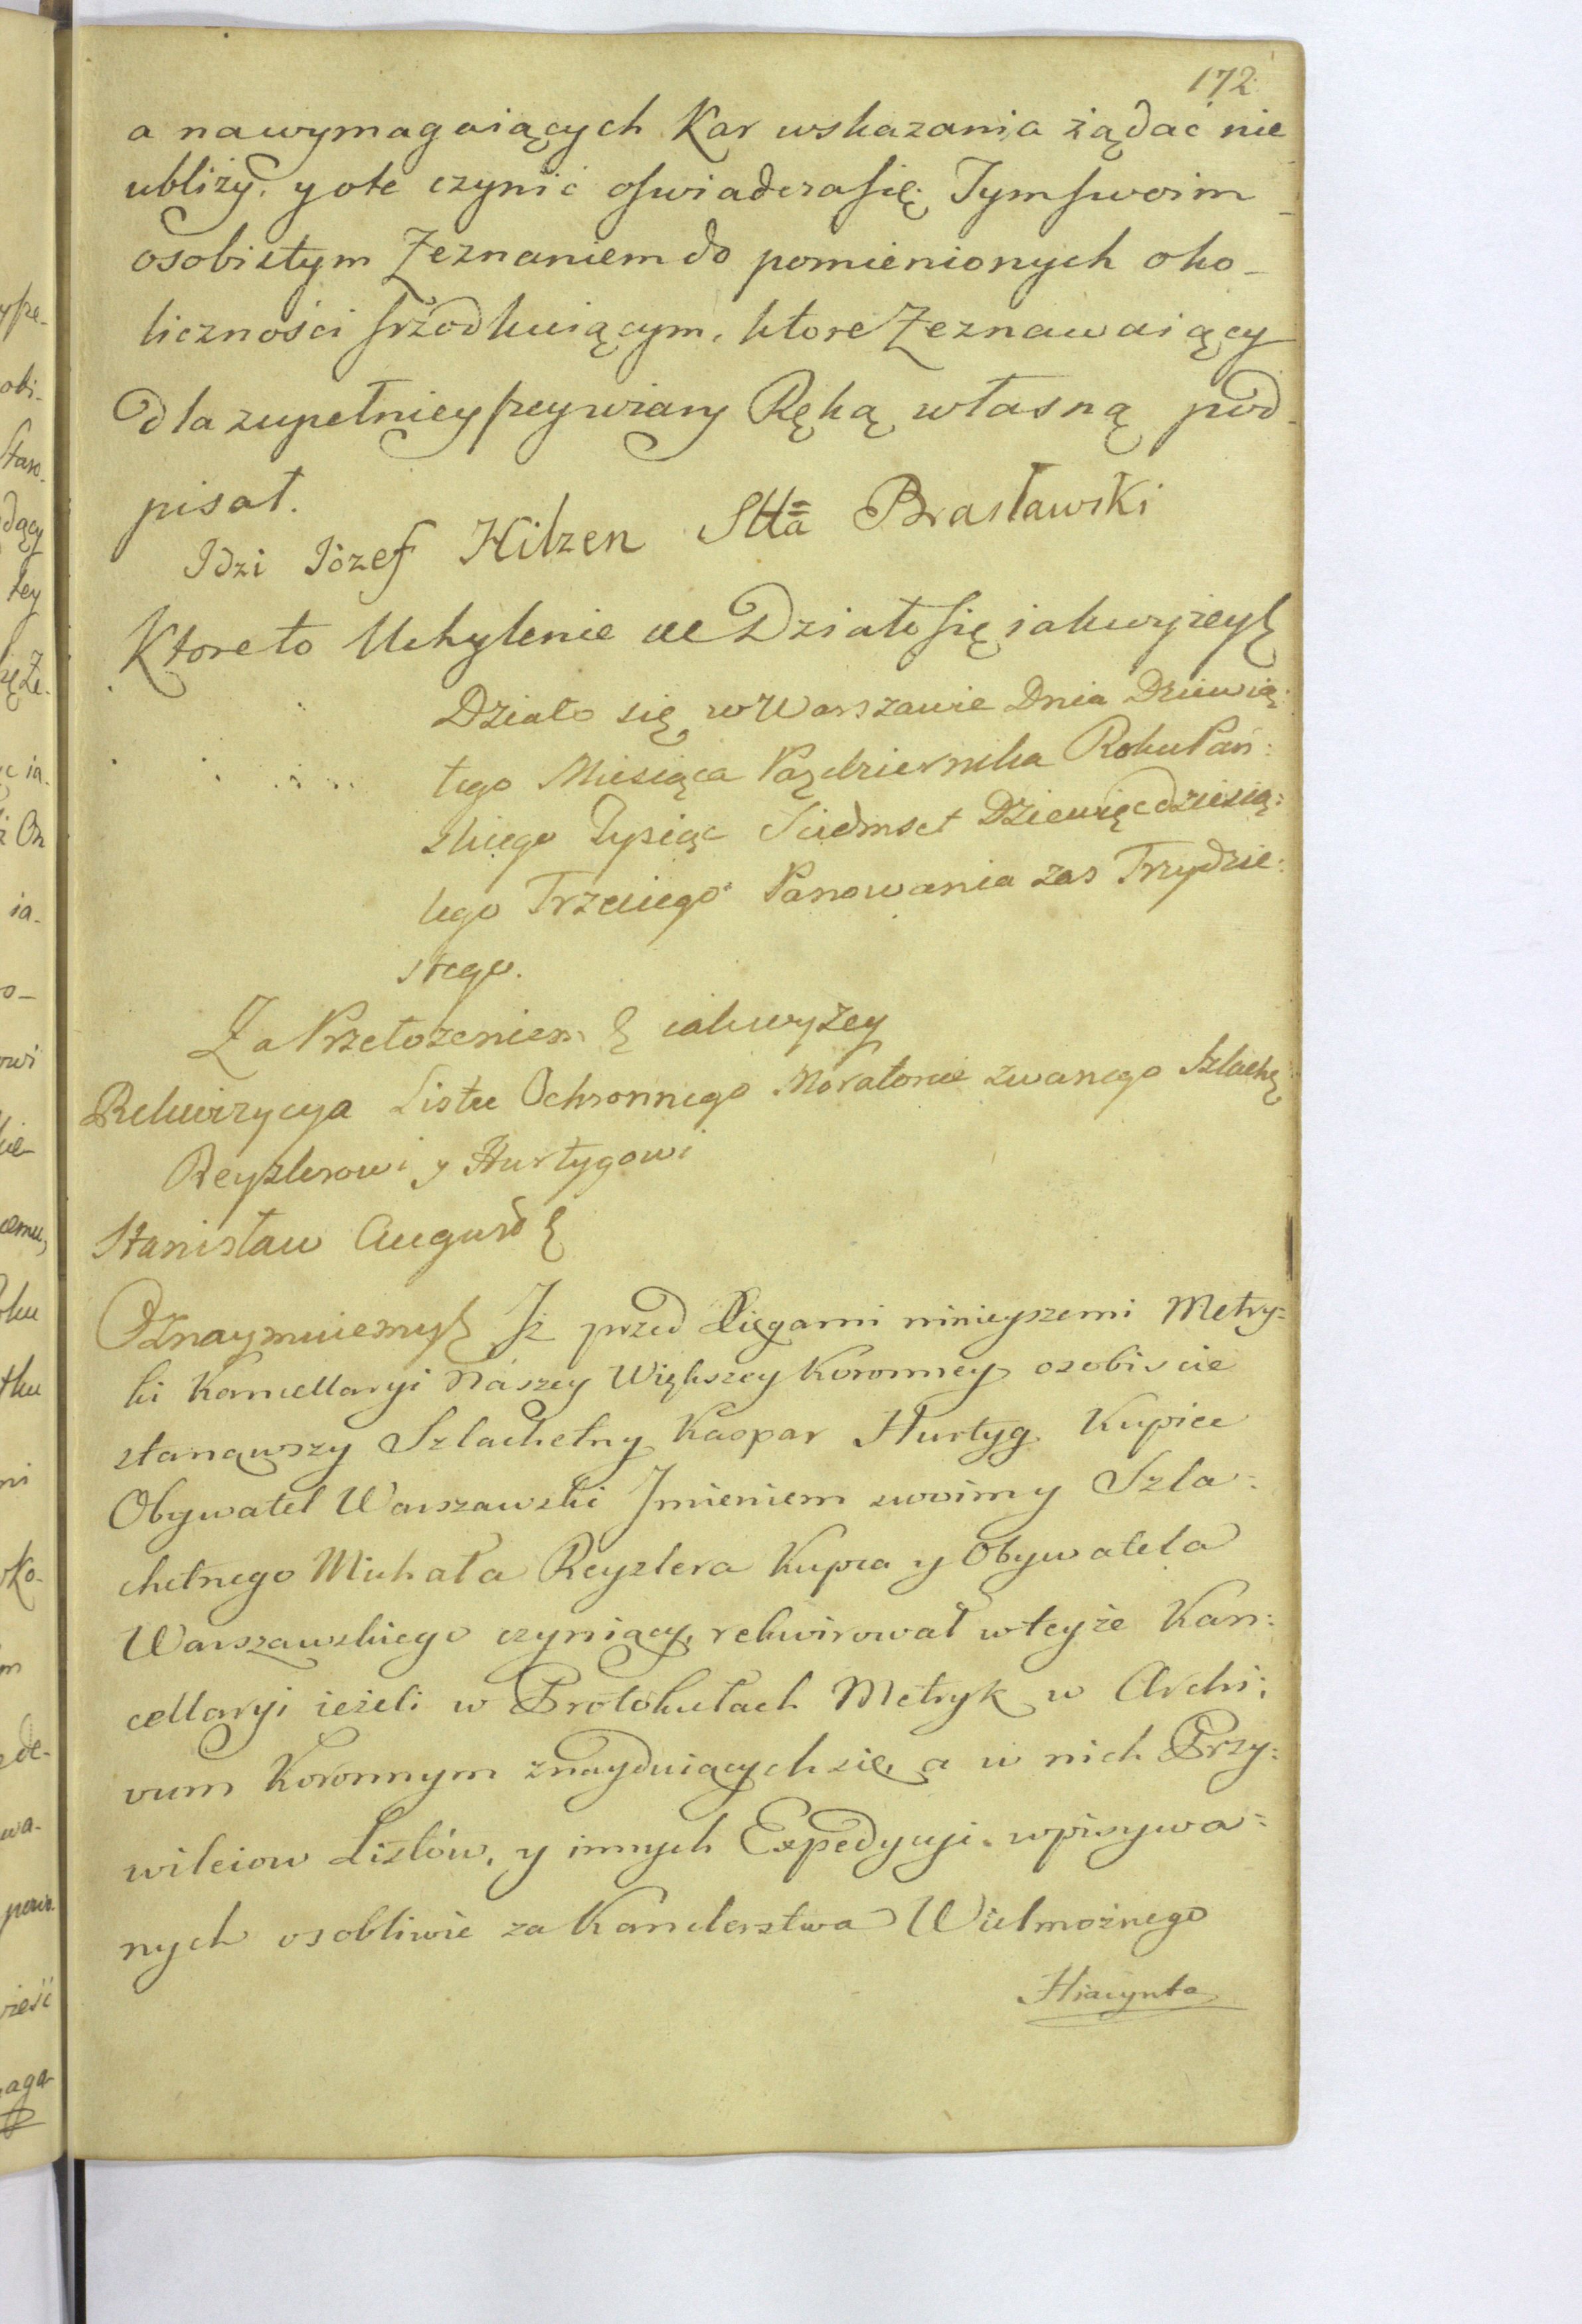 172
a na wymagaiących Kar wskazania żądać nie
ubliży, y ote czynić oswiadcza się. Tym swoim
osobistym Zeznaniem do pomienionych oko-
liczności srzodkuiącym, ktore Zeznawaiący
dla zupełniey szey wiary Ręką własną pod-
pisał.
Idzi Józef Hilzen Stta Brasławski
Ktore to Uchylenie &c Działo się iak wyżey &
Działo się w Warszawie Dnia Dziewią:
tego Miesiąca Pazdziernika Roku Pań:
skiego Tysiąc Siedmset Dziewięcdziesią:
tego Trzeciego Panowania zas Trzydzie:
stego.
Za Przełożeniem & iak wyżey
Rekwizycya Listu Ochronnego Moratorie zwanego Szlache
Reyzlerowi y Hurtygowi
Stanisław August &
Oznaymuiemy & Iż przed Xięgami ninieyszemi Metry:
ki Kancellaryi Naszey Większey Koronney osobiscie
stanąwszy Szlachetny Kaspar Hurtyg Kupiec
Obywatel Warszawski Imieniem swoim y Szla:
chetnego Michała Reyzlera Kupca y Obywatela
Warszawskiego czyniący, rekwirował w teyże Kan:
cellaryi ieżeli w Protokułach Metryk w Archi:
vum Koronnym znayduiących się, a w nich Przy:
wileiow Listów, y innych Expedycyi wpisywa:
nych osobliwie za Kanclerstwa Wielmożnego
Hiacynta